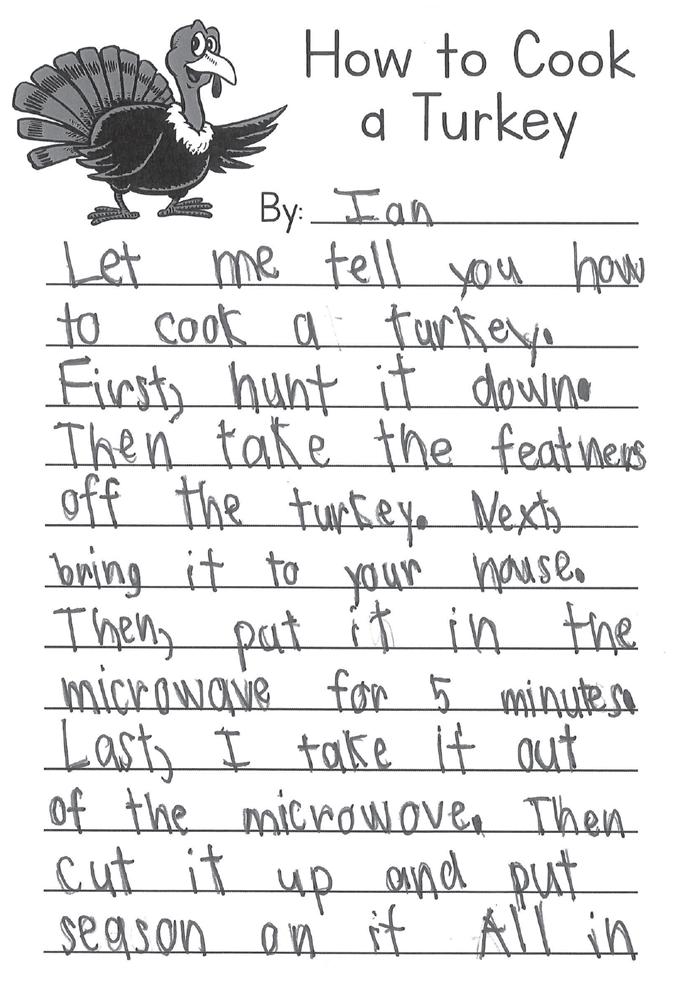 How to Cook
a Turkey
By: Ian
Let me tell you how
to cook a turkey.
First, hunt it down.
Then take the feathers
off the turkey. Next,
bring it to your house.
Then, put it in the
microwave for 5 minutes.
Last, I take it out
of the microwove. Then
cut it up and put
season on it All in